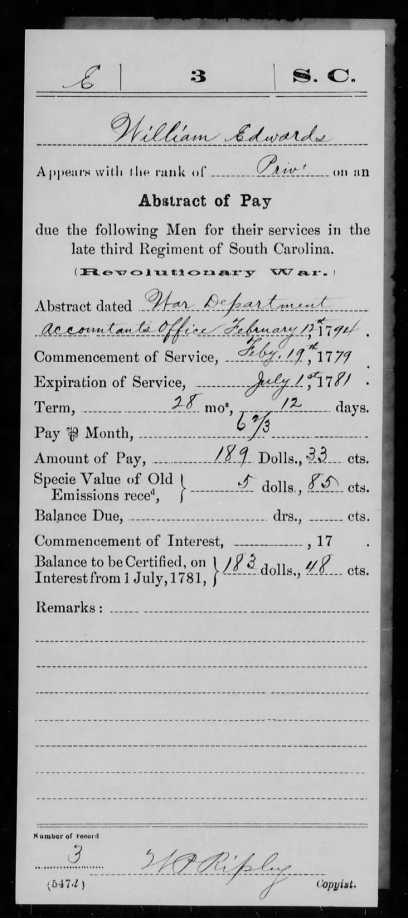 E | 3 | S. C.
William Edwards
Appears with the rank of Priv' on an
Abstract of Pay
due the following Men for their services in the
late third Regiment of South Carolina.
(Revolutionary War.)
Abstract dated War Department
Accountants Office February 12th, 1794.
Commencement of Service, Feby. 19th, 1779.
Expiration of Service, July 1st, 1781.
Term, 28 mos, 12 days.
Pay ⅌ Month, 6 2/3
Amount of Pay, 189 Dolls., 33 cts.
Specie Value of Old
Emissions recd, } 5 dolls., 85 cts.
Balance Due, drs., cts.
Commencement of Interest, , 17 .
Balance to be Certified, on
Interest from 1 July, 1781, } 183 dolls., 48 cts.
Remarks:
Number of record
3
W P Ripley
(547d) Copyist.